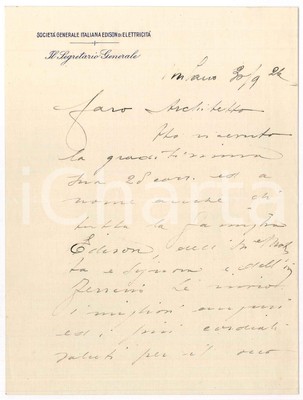 SOCIETÀ GENERALE ITALIANA EDISON DI ELETTRICITÀ
Il Segretario Generale
Milano 30/9 24
Caro Architetto
Ho ricevuto
la graditissima
sua 28 corr. ed a
nome anche di
tutta la famiglia
Edison, dell'Ing
ta e Signora e dell'Ing
Ferrerio Le invio
i migliori auguri
ed i più cordiali
saluti per il suo
iCharta